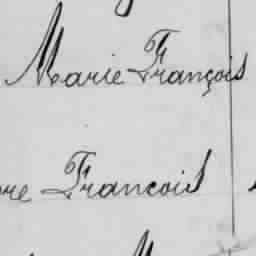 Marie François
re Francois